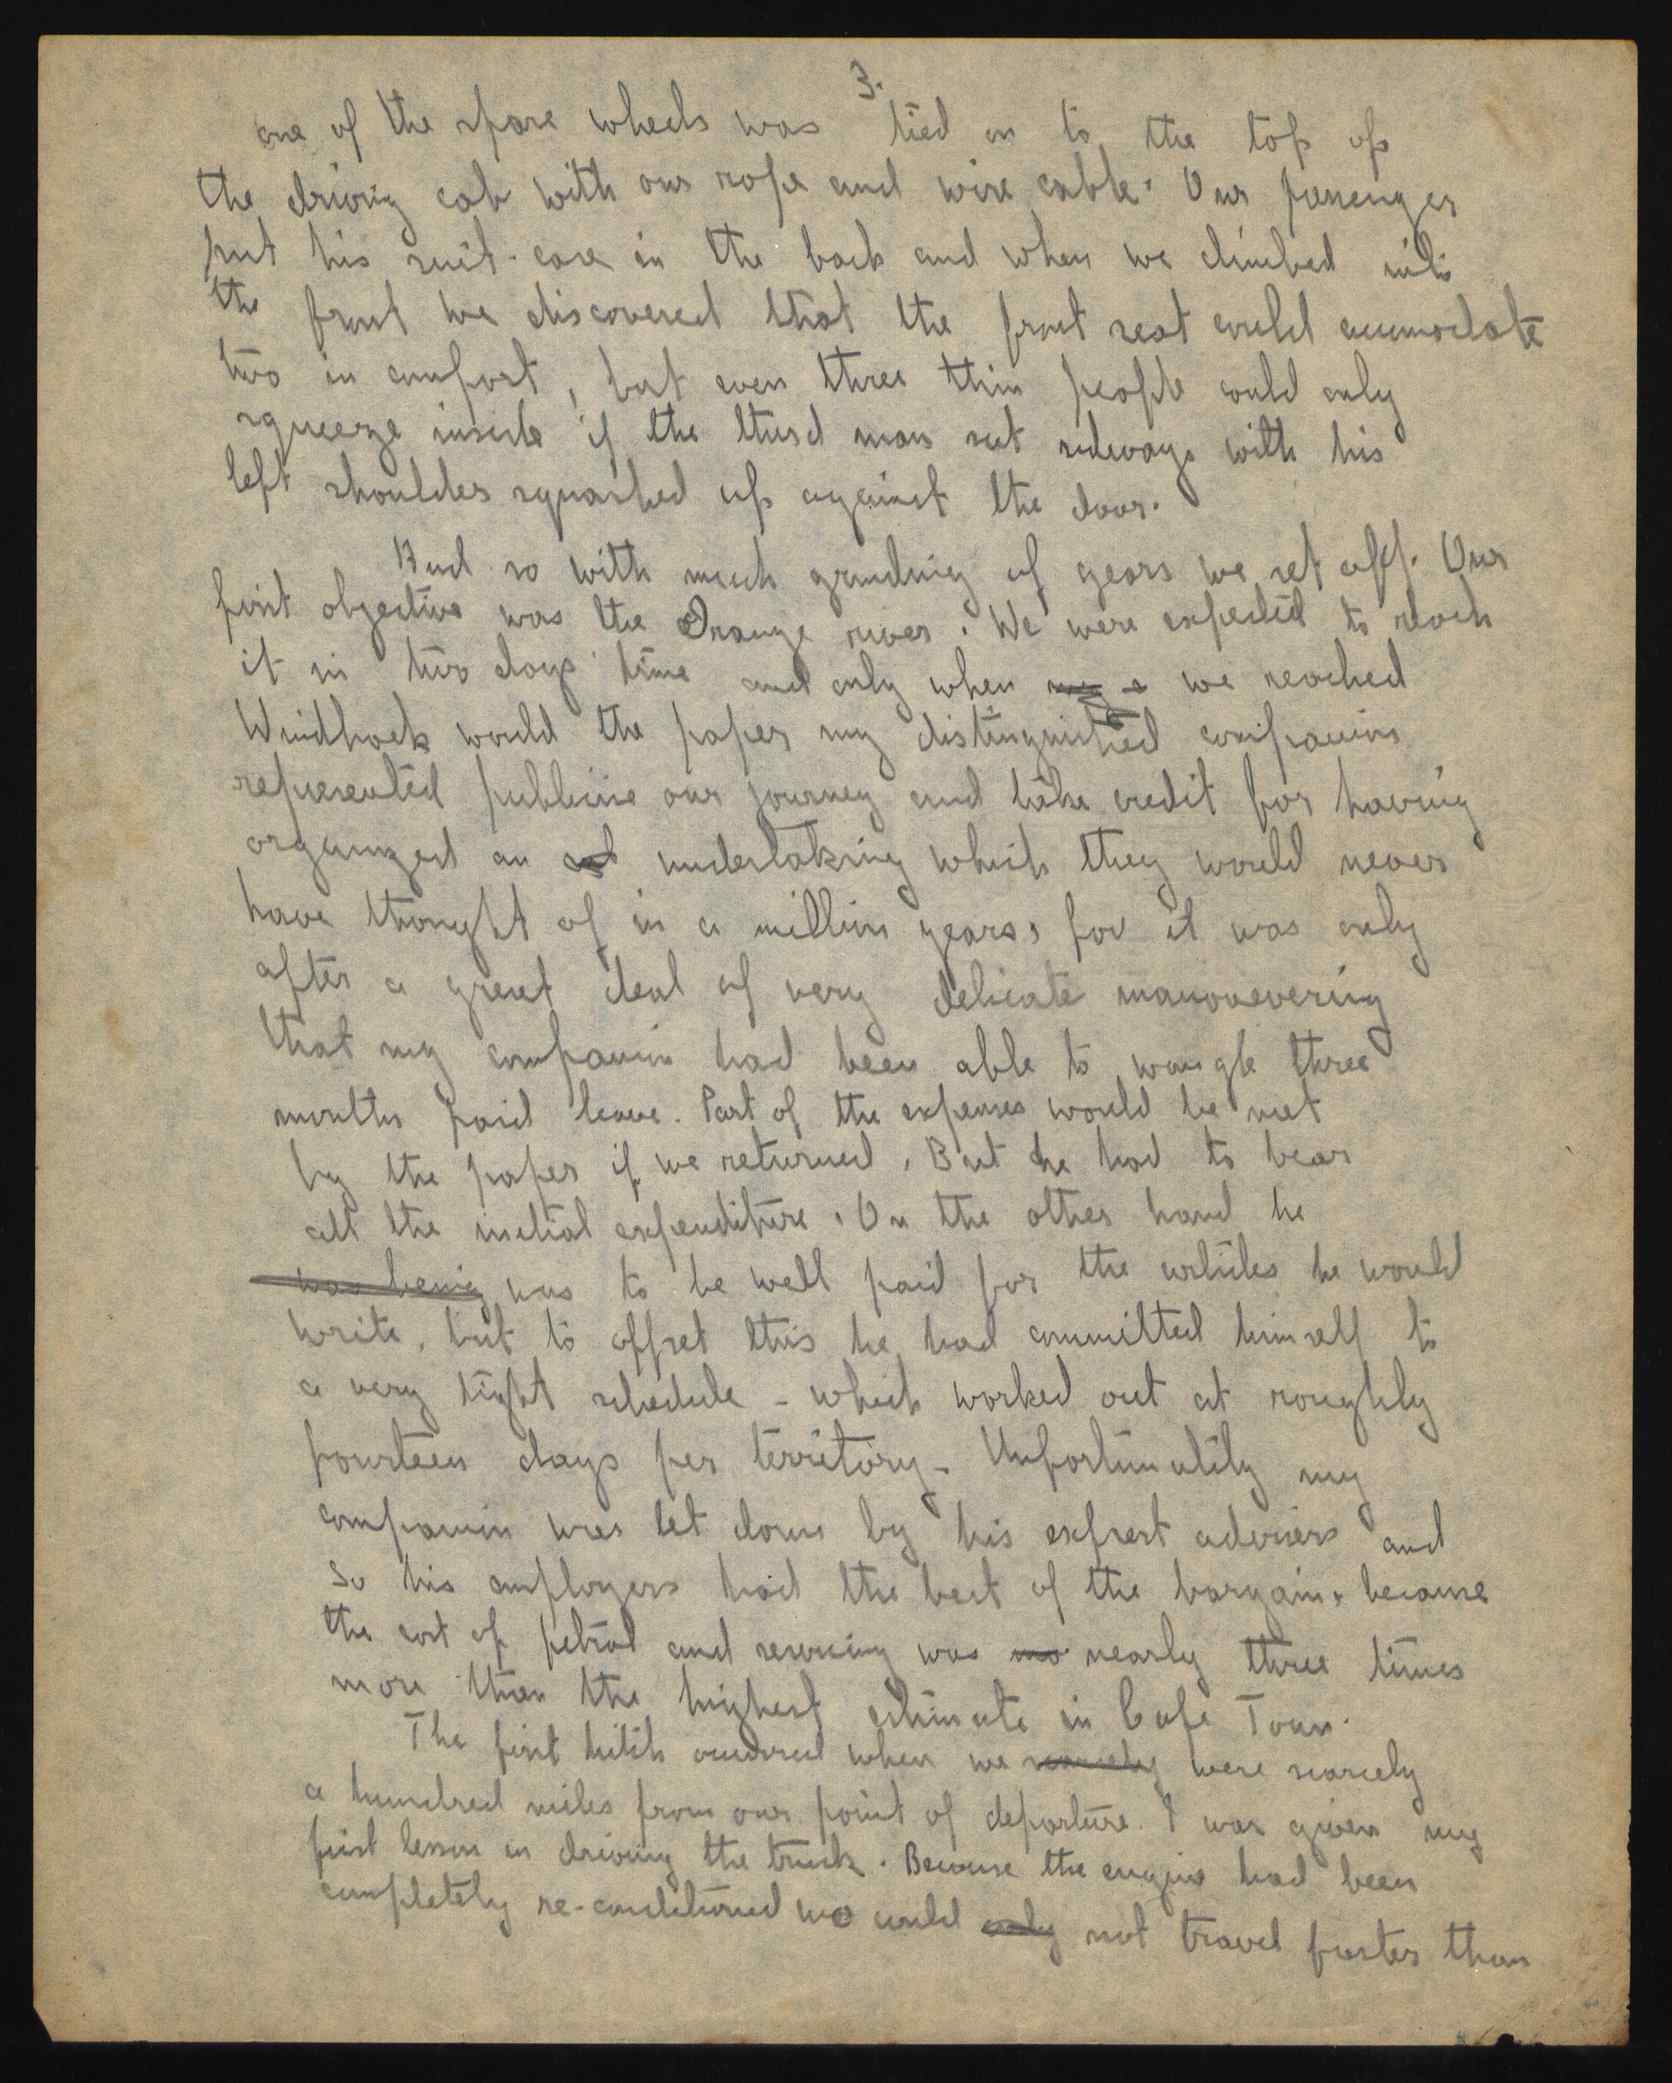 3.
one of the spare wheels was tied on to the top of
the driving cab with our rope and wire cable. Our passenger
put his suit-case in the back and when we climbed into
the front we discovered that the front seat could accomodate
two in comfort, but even three thin people could only
squeeze inside if the third man sat sideways with his
left shoulder squashed up against the door.
And so with much grinding of gears we set off. Our
first objective was the Orange river. We were expected to reach
it in two days' time and only when we reached
Windhoek would the paper my distinguished companion
represented publicise our journey and take credit for having
organized an undertaking which they would never
have thought of in a million years, for it was only
after a great deal of very delicate manouevering
that my companion had been able to wangle three
months paid leave. Part of the expenses would be met
by the paper if we returned. But he had to bear
all the initial expenditure. On the other hand he
was being was to be well paid for the articles he would
write, but to offset this he had committed himself to
a very tight schedule - which worked out at roughly
fourteen days per territory. Unfortunately my
companion was let down by his expert advisers and
so his employers had the best of the bargain, because
the cost of petrol and servicing was nearly three times
more than the highest estimate in Cape Town.
The first hitch occurred when we scarcely were scarcely
a hundred miles from our point of departure. I was given my
first lesson in driving the truck. Because the engine had been
completely re-conditioned we could only not travel faster than